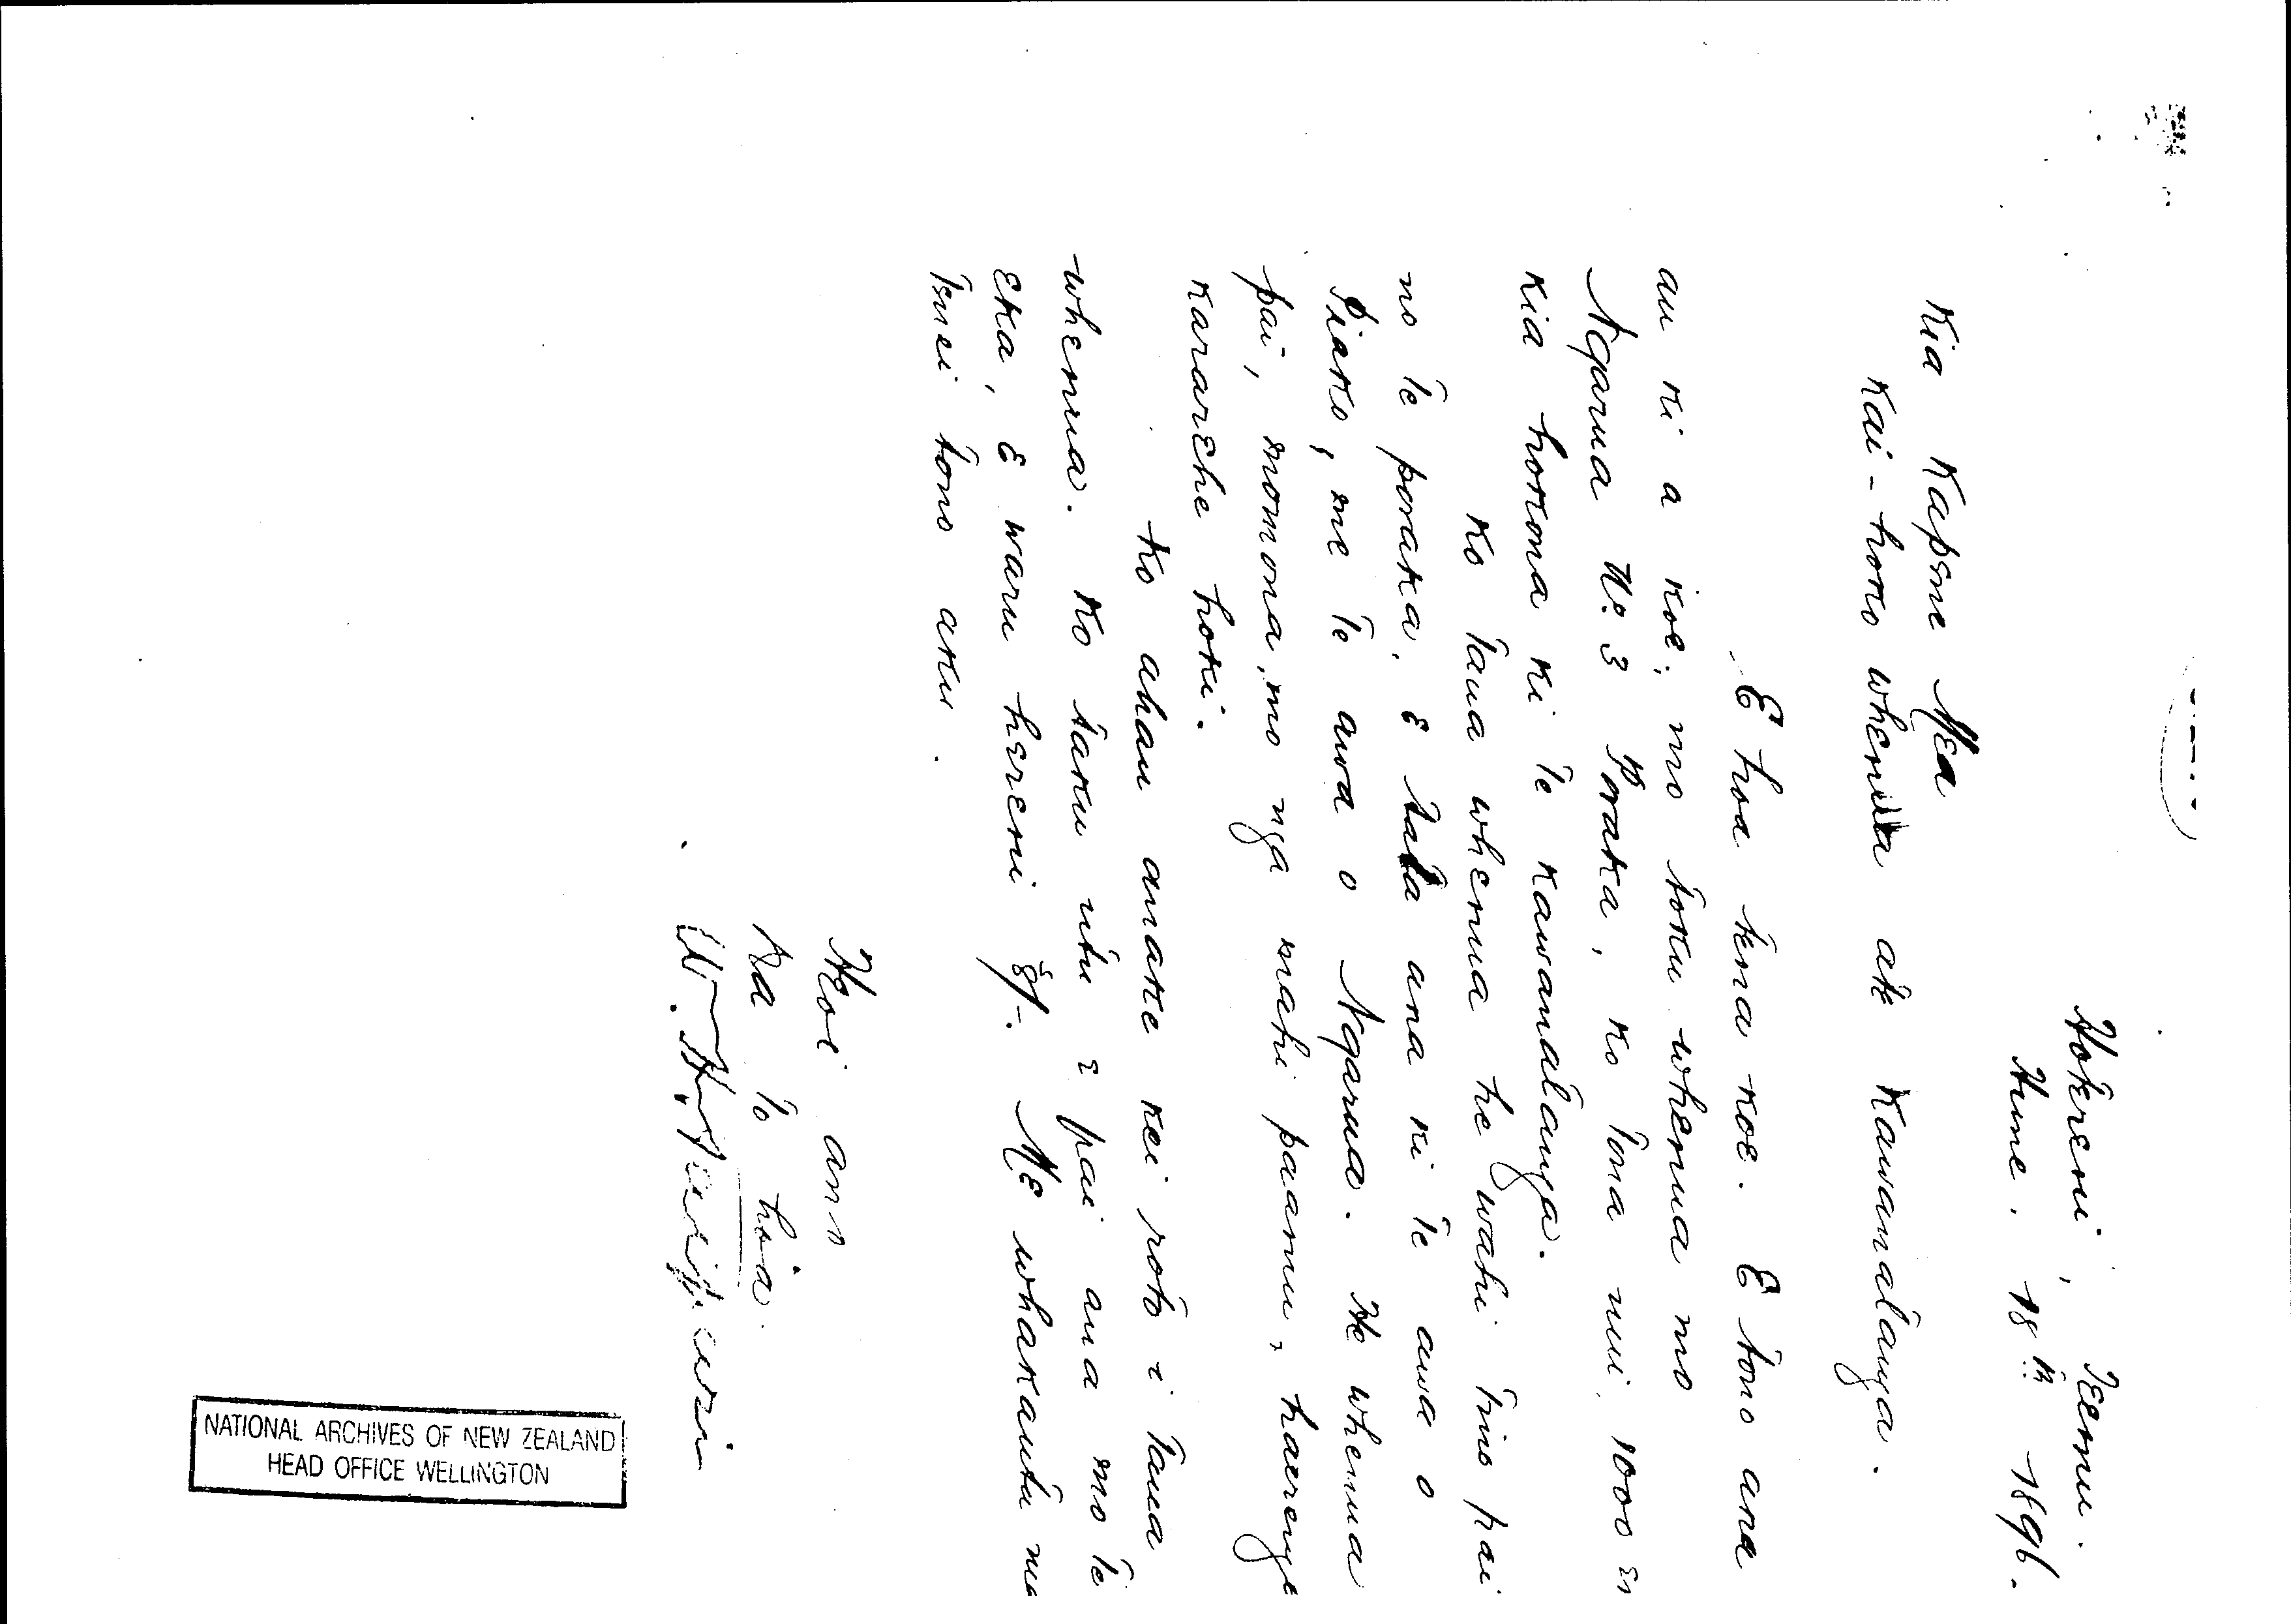 Hokreni, Teemu.
Hune. 18th 1896.
Kia Kapene Mea
Kai-hoko whenua ate Kawanatanga.
E hoa tena koe. E tono ana
au ki a koe, mo toku whenua mo
Ngarua No. 3 Poraka, ko tona nui, 1000
kia hokona ki te kawanatanga.
Ko taua whenua he wahi tino pai
no te poraka, e tata ana ki te awa o
Piako, me te awa o Ngarua. He whenua
pai, momona, mo nga mahi paamu, haerenga
kararehe hoki.
Ko ahau anake kei roto i taua
whenua. Ko taku utu e pai ana mo te
eka, e waru hereni 8/-. Me whakautu mai
tenei tono aku.
Heoi ano
Na to hoa
NATIONAL ARCHIVES OF NEW ZEALAND
HEAD OFFICE WELLINGTON